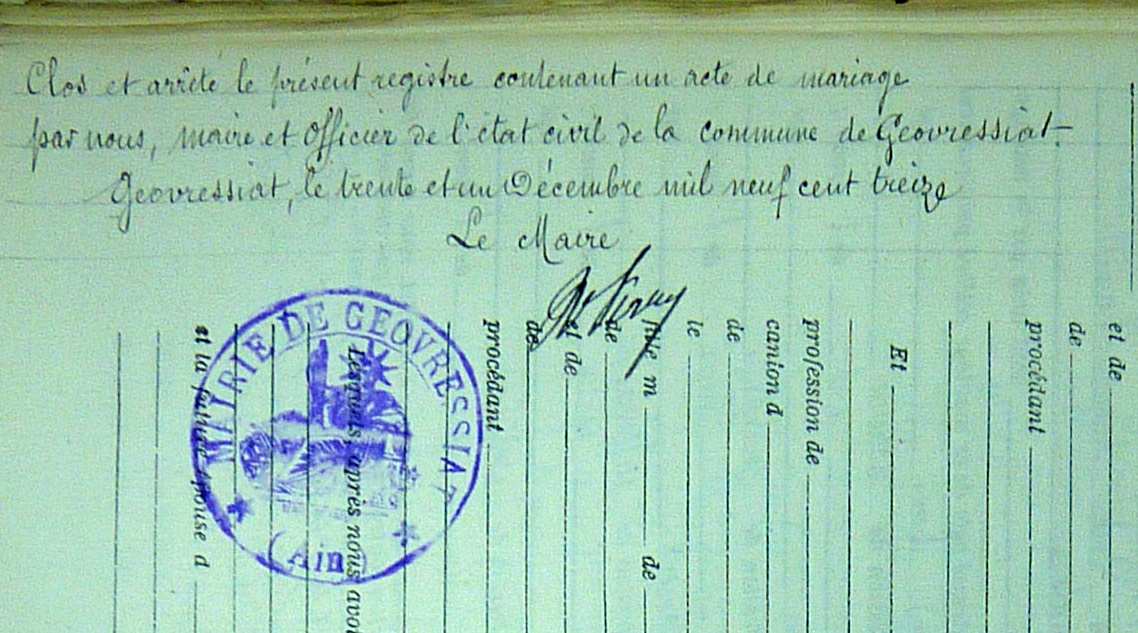 Clos et arrêté le présent registre contenant un acte de mariage
par nous, maire et Officier de l'état civil de la commune de Géovressiat.
Géovressiat, le trente et un Décembre mil neuf cent treize
Le Maire
MAIRIE DE GEOVRESSIAT
(Ain)
et de
de
procédant
Et
profession de
canton d
de
le
fille m de
de
et de
de
procédant
Lesquels, après nous avoi
et la future épouse d